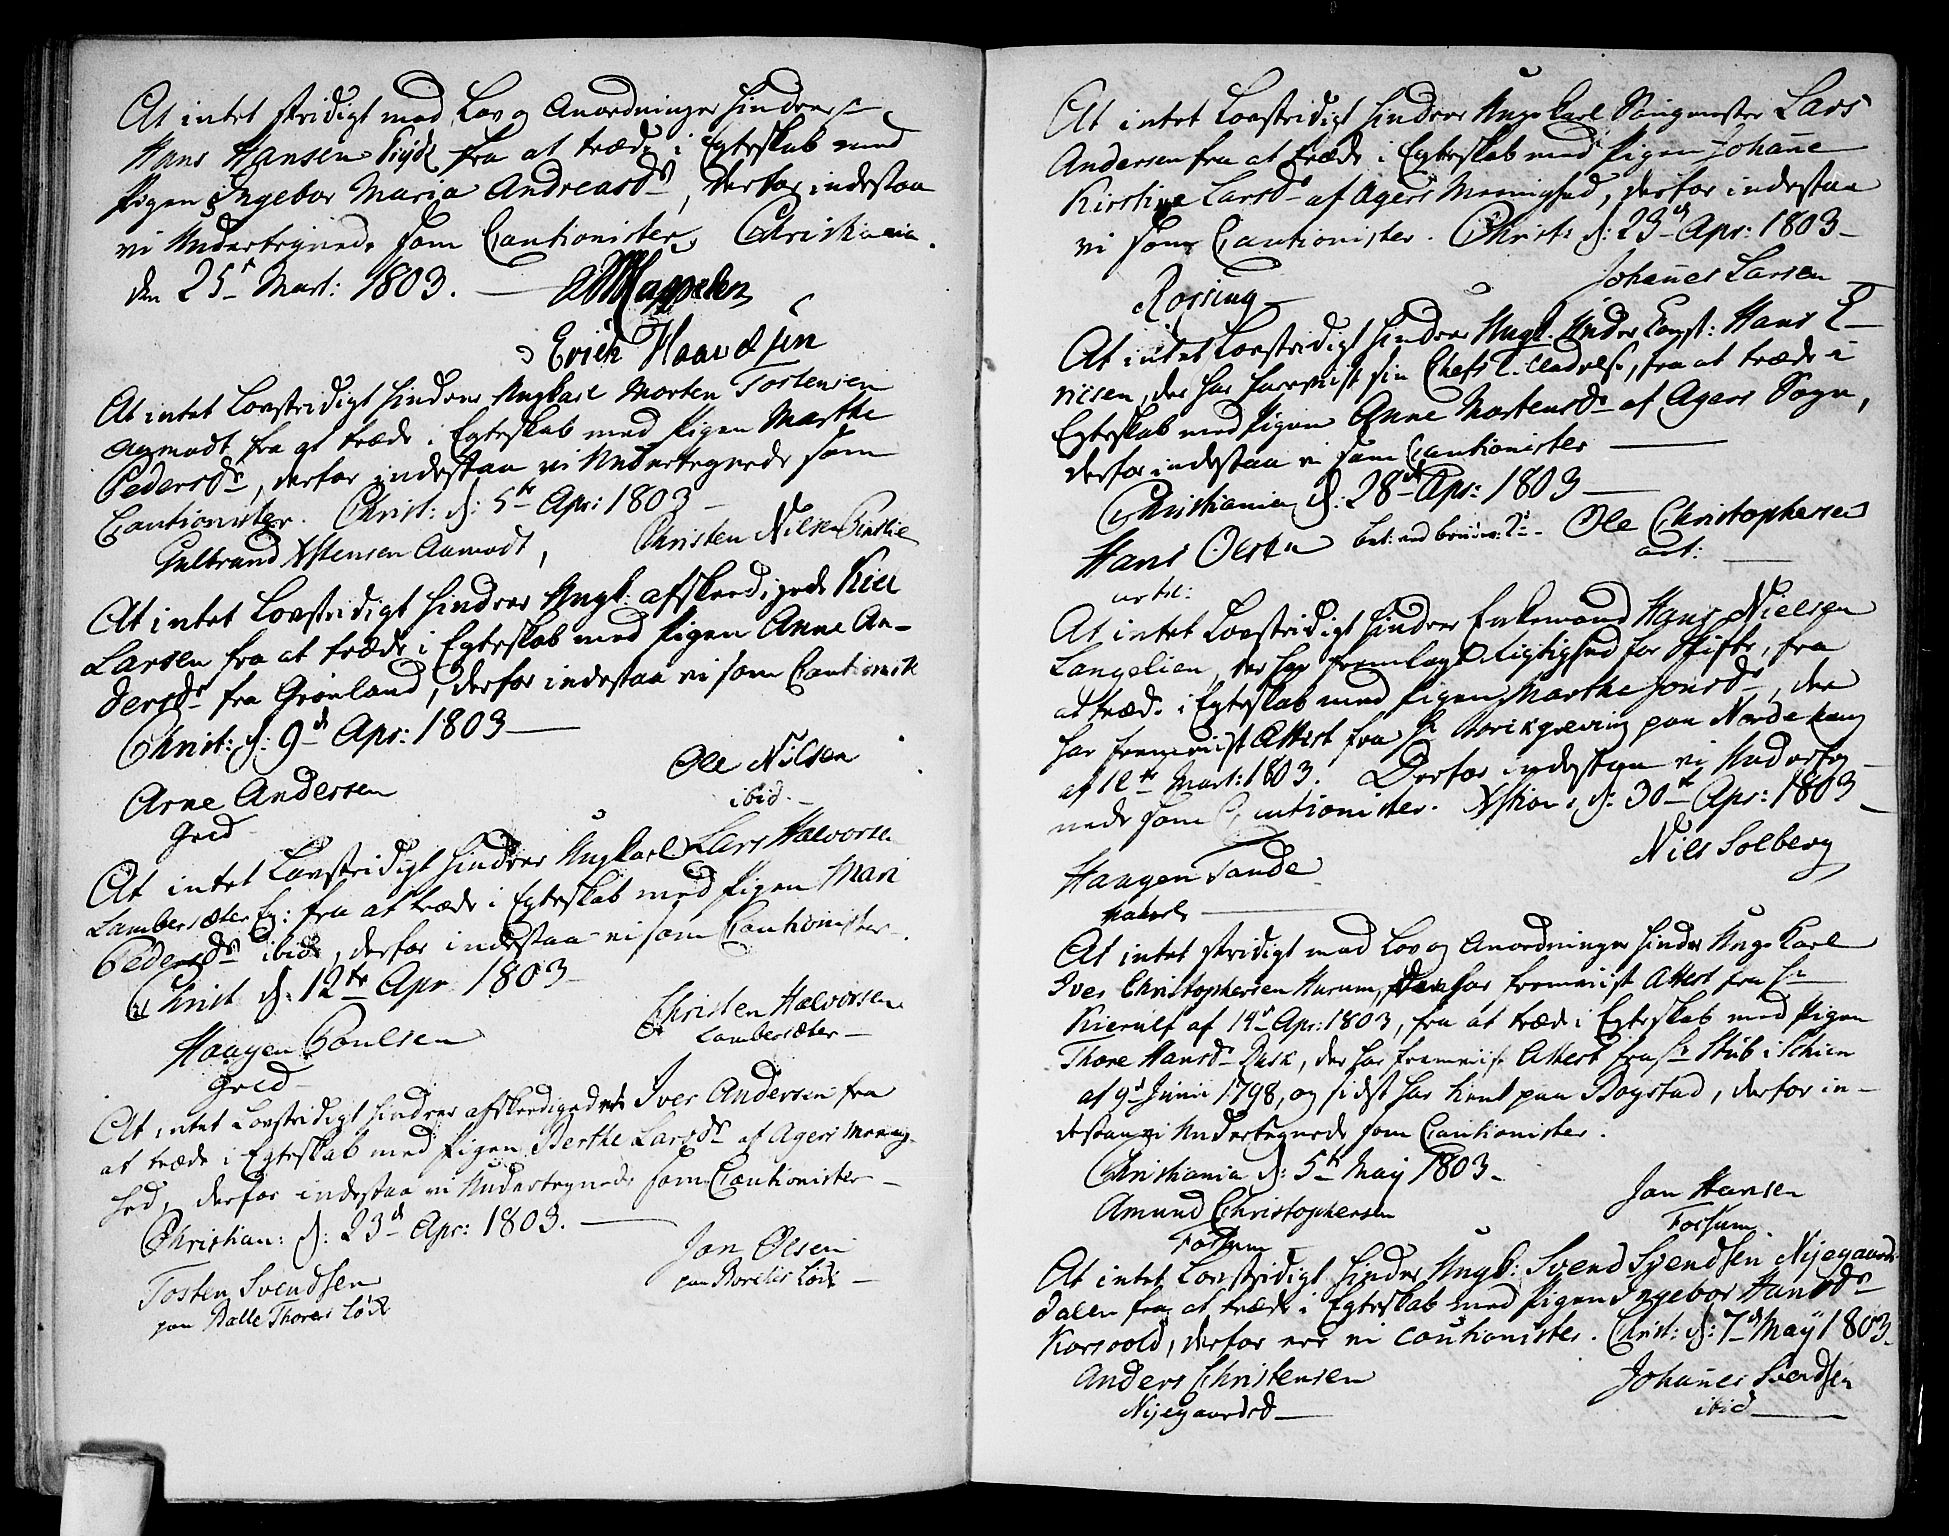 At intet stridigt med Lov og Anordninger hindrer
Hans Hansen fra at træde i Egteskab med
Pigen Ingebor Maria Andreasdr, derfor indestaa
vi Undertegnede som Cautionister, Christiania
den 25 Mart: 1803.
Erich Haavdsen
At intet Lovstridigt hindrer Ungkarl Morten Tostensen
Aamodt fra at træde i Egteskab med Pigen Marthe
Pedersdr, derfor indestaa vi Undertegnede som
Cautionister. Christ: d: 5te Apr: 1803
Gulbrand Xstensen Aamodt, Christen Nilsen
At intet Lovstridigt hindrer Ungk: afskeedigede Niel
Larsen fra at træde i Egteskab med Pigen Anne An-
dersdr fra Grønland, derfor indestaa vi som Cautionist
Christ: d: 9d Apr: 1803
Arne Andersen Ole Nilsen
ibid.
At intet Lovstridigt hindrer Ungkarl Lars Halvorsen
Lambersæter Eg: fra at træde i Egteskab med Pigen Mari
Pedersdr ibid, derfor indestaa vi som Cautionister.
Christ d: 12te Apr 1803
Haagen Poulsen Christen Halvorsen
Lambersæter
At intet Lovstridigt hindrer afskeedigede Iver Andersen fra
at træde i Egteskab med Pigen Berthe Larsdr af Agers Meenig-
hed, derfor indestaa vi Undertegnede som Cautionister
Christian: d: 23d Apr: 1803.
Tosten Svendsen Jon Olsen
paa Balle Thores Løck paa Løck
At intet Lovstridigt hindrer Ungekarl Lars
Andersen fra at træde i Egteskab med Pigen Johanne
Kirstine Larsdr af Agers Meenighed, derfor indestaa
vi som Cautionister. Christ: d: 23d Apr: 1803
Rossing Johannes Larsen
At intet Lovstridigt hindrer Ungk. Under Hans E-
riksen, der har fremviist sin Chefs Tilladelse, fra at træde i
Egteskab med Pigen Anne Mortensdr af Agers Sogn,
derfor indestaa vi som Cautionister
Christiania d: 28de Apr: 1803
Hans Olsen Ole Christophersen
At intet Lovstridigt hindrer Enkemand Hans Nielsen
Langelien, der har fremlagt Rigtighed for Skifte, fra
at træde i Egteskab med Pigen Marthe Jonsdr, der
har fremviist Attest fra Hr paa
af 12te Mart: 1803. Derfor indestaa vi Underteg-
nede som Cautionister. Xstian: d: 30te Apr: 1803
Haagen Sande Nils Solberg
At intet stridigt med Lov og Anordninger hinder Ungekarl
Iver Christophersen Hurum, der har fremviist Attest fra Hr
Kierulf af 14d Apr: 1803, fra at træde i Egteskab med Pigen
Thore Hansdr Dask, der har fremviist Attest fra Hr Stub i Schien
af 9d Junii 1798, og sidst har tient paa Bogstad, derfor in-
destaa vi Undertegnede som Cautionister.
Christiania d: 5te May 1803
Amund Christophersen Jan Hansen
Fossum Fossum
At intet Lovstridigt hinder Ungk: Svend Svendsen Nyegaards-
dalen fra at træde i Egteskab med Pigen Ingebor Hansdr
Korsvold, derfor ere vi Cautionister. Christ: d: 7d May 1803
Anders Christensen Johannes Svendsen
Nyegaardsd ibid